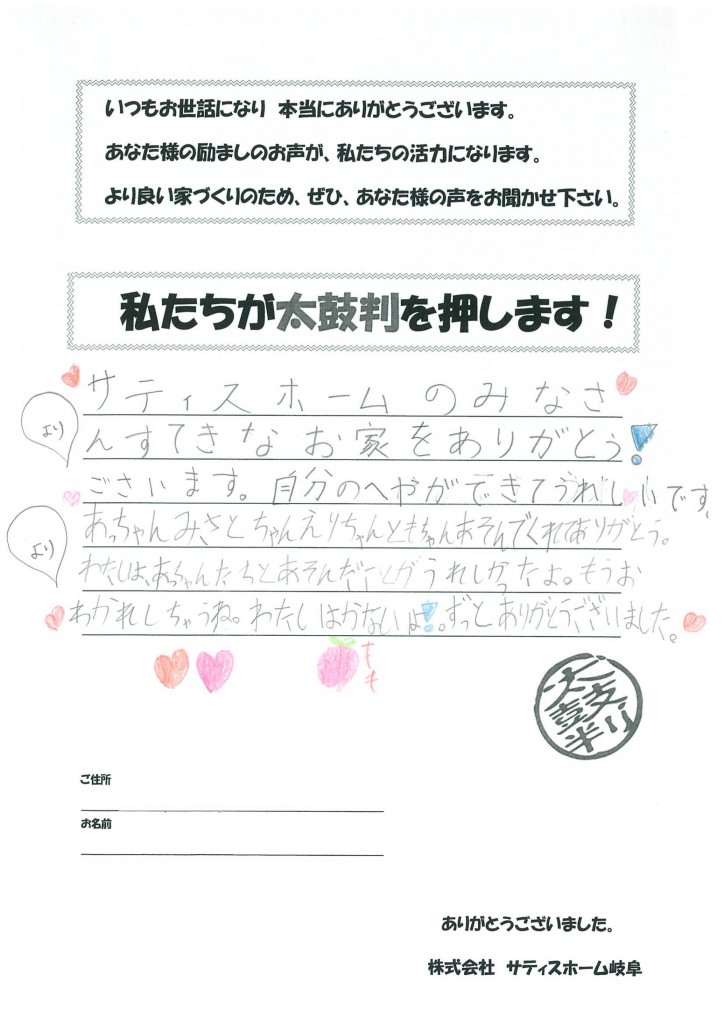 いつもお世話になり 本当にありがとうございます。
あなた様の励ましのお声が、私たちの活力になります。
より良い家づくりのため、ぜひ、あなた様の声をお聞かせ下さい。
私たちが太鼓判を押します！
サティスホームのみなさ
より
んすてきなお家をありがとう!
ございます。自分のへやができてうれしいです。
あっちゃんみさとちゃんえりちゃんともちゃんあそんでくれてありがとう。
より
わたしは、あっちゃんたちとあそんだことがうれしかったよ。もうお
わかれしちゃうね。わたしはかないよ!。ずっとありがとうございました。
もも
太鼓判
ご住所
お名前
ありがとうございました。
株式会社 サティスホーム岐阜